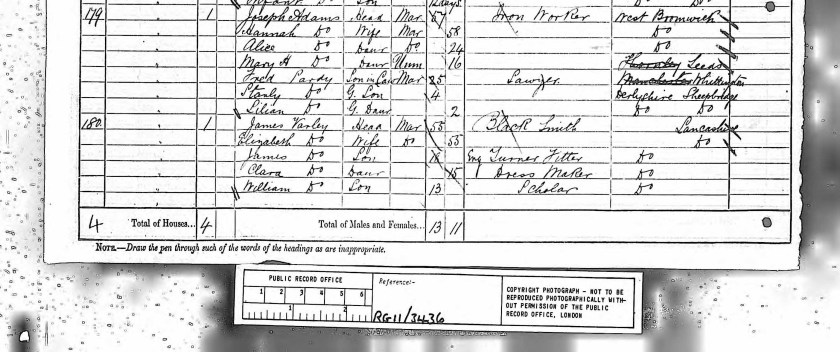 Infant Do Son 12 days Do Do
179 1 Joseph Adams Head Mar 57 Iron Worker West Bromwich
Hannah Do Wife Mar 58 Do
Alice Do Daur Do 24 Do
Mary H Do Daur Unm 16 Leeds
Fredd Pardy Son in Law Mar 25 Sawyer Manchester Whittington
Stanly Do G. Son 4 Derbyshire Sheepbridge
Lilian Do G. Daur 2 Do Do
180 1 James Varley Head Mar 55 Black Smith Lancashire
Elizabeth Do Wife Do 55 Do
James Do Son 18 Eng Turner Fitter Do
Clara Do Daur 15 Dress Maker Do
William Do Son 13 Scholar Do
4 Total of Houses... 4 Total of Males and Females... 13 11
NOTE.—Draw the pen through such of the words of the headings as are inappropriate.
PUBLIC RECORD OFFICE
1 2 3 4 5 6
1 2
Reference:-
RG11/3436
COPYRIGHT PHOTOGRAPH - NOT TO BE
REPRODUCED PHOTOGRAPHICALLY WITH-
OUT PERMISSION OF THE PUBLIC
RECORD OFFICE, LONDON